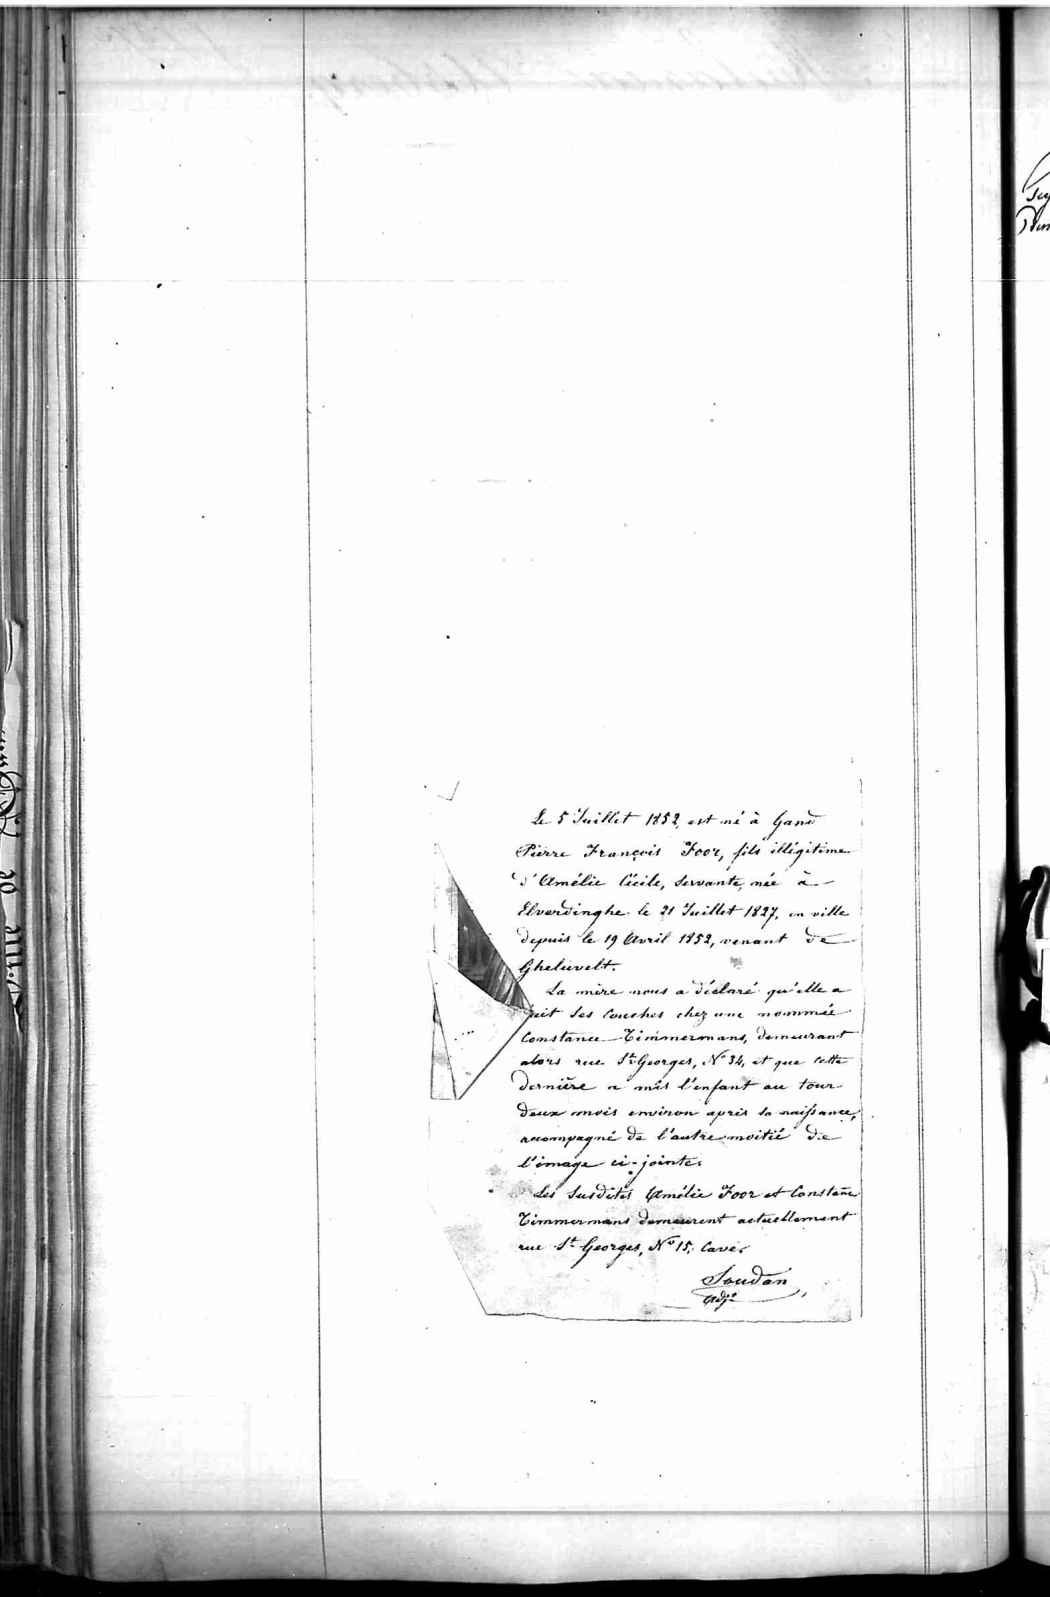 Le 5 Juillet 1852, est né à Gand
Pierre François Foor, fils illégitime
d'Amélie Cécile, servante, née à
Elverdinghe le 21 Juillet 1827, en ville
depuis le 19 Avril 1852, venant de
Gheluvelt.
La mère nous a déclaré qu'elle a
fait ses couches chez une nommée
Constance Timmermans, demeurant
alors rue St Georges, No 34, et que cette
dernière a mis l'enfant au tour
deux mois environ après sa naissance,
accompagné de l'autre moitié de
l'image ci-jointe.
Les susdites Amélie Foor et Constance
Timmermans demeurent actuellement
rue St Georges, No 15, Cave.
Soudan
Adjt